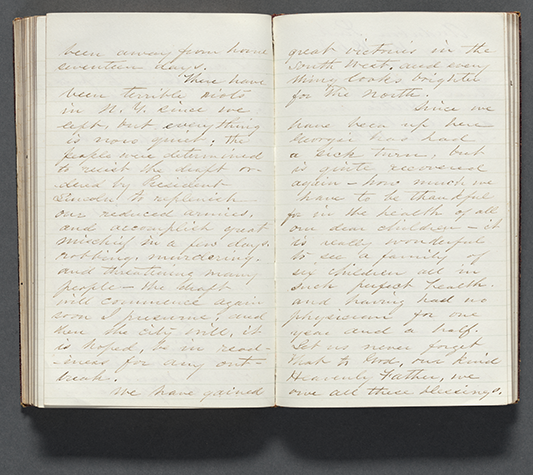 been away from home
seventeen days.
There have
been terrible Riots
in N. Y. since we
left, but everything
is now quiet. The
people were determined
to resist the draft or-
dered by President
Lincoln to replenish
our reduced armies,
and accomplish great
mischief in a few days.
robbing, murdering,
and threatening many
people – the draft
will commence again
soon I presume, and
then the city will, it
is hoped, be in read-
-iness for any out-
break.
We have gained
great victories in the
South West, and every
thing looks brighter
for the North.
Since we
have been up here
Georgie has had
a sick turn, but
is quite recovered
again – how much we
have to be thankful
for in the health of all
our dear children – it
is really wonderful
to see a family of
six children all in
such perfect health.
and having had no
physician for one
year and a half.
Let us never forget
that to God, our kind
Heavenly Father, we
owe all these blessings.